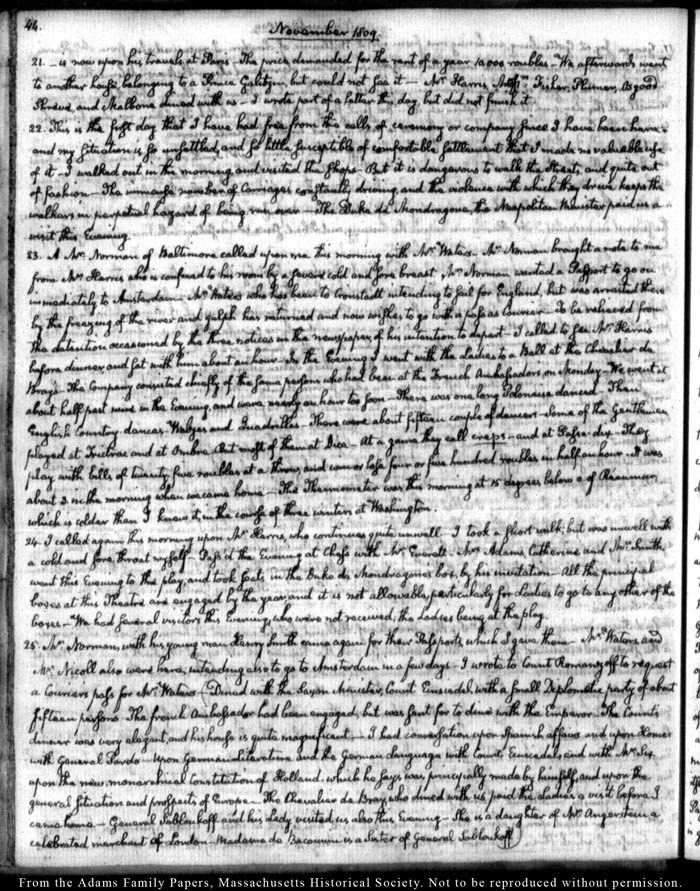 44.
November 1809.
21. — is now upon his travels at Paris— The price demanded for the rent of a year 10000 roubles— We afterwards went
to another house belonging to a Prince Galitzin, but could not see it — Mr. Harris, Fisher, Plumer, Osgood
Shreve, and Malbone dined with us — I wrote part of a letter this day, but did not finish it.
22. This is the first day that I have had free from the calls of ceremony or company since I have been here—
and my situation is so unsettled, and so little susceptible of comfortable settlement that I made no valuable use
of it— I walked out in the morning, and visited the shops— But it is dangerous to walk the streets, and quite out
of fashion— The immense number of Carriages constantly driving, and the violence with which they drive keeps the
walkers in perpetual hazard of being run over— The Duke de Mondragone, the Neapolitan Minister paid us a
visit this Evening.
23. A Mr. Norman of Baltimore called upon me this morning with Mr. Waters. Mr. Norman brought a note to me
from Mr. Harris who is confined to his room by a severe cold and sore breast, Mr. Norman wanted a Passport to go on
immediately to Amsterdam— Mr. Waters who has been to Cronstadt intending to sail for England, but was arrested there
by the freezing of the river and gulph has returned and now wishes to go with a pass as Courier— To be relieved from
the detention occasioned by the three notices in the newspaper, of his intention to depart— I called to see Mr. Harris
before dinner, and sat with him about an hour. In the Evening I went with the Ladies to a Ball at the Chevalier de
Bray's. The Company consisted chiefly of the same persons who had been at the French Ambassadors on Monday— We went at
about half past nine in the Evening, and were nearly an hour too soon— There was one long Polonaise danced. Then
English Country-dances— Walzes and Quadrilles— There were about fifteen couple of dancers— Some of the Gentlemen
played at Trictrac and at Ombre. But most of them at Dice— At a game they call creps— and at Passe-dix— They
play with bills of twenty five roubles at a throw, and win or lose four or five hundred roubles in half an hour— It was
about 2. in the morning when we came home— The Thermometer was this morning at 15 degrees below 0. of Reaumur,
which is colder than I knew it, in the course of three winters at Washington.
24. I called again this morning upon Mr. Harris, who continues quite unwell— I took a short walk; but was unwell with
a cold and sore throat myself— Pass'd the Evening at Chess with Mr. Everett— Mrs. Adams, Catherine and Mr. Smith
went this Evening to the play, and took seats in the Duke de Mondragone's box, by his invitation— All the principal
boxes at this Theatre are engaged by the year and it is not allowable, particularly for Ladies to go to any other of the
boxes— We had several visitors this Evening, who were not received, the Ladies being at the play.
25. Mr. Norman, with his young man Henry Smith came again for their Passports, which I gave them— Mr. Waters and
Mr. Nicoll also were here, intending also to go to Amsterdam in a few days— I wrote to Count Romanzoff to request
a Couriers pass for Mr. Waters— Dined with the Saxon Minister, Count Einsiedel, with a small Diplomatic party of about
fifteen persons. The french Ambassador had been engaged, but was sent for to dine with the Emperor— The Count's
dinner was very elegant, and his house is quite magnificent— I had conversation upon Spanish affairs and upon Homer
with General Pardo— upon German Literature and the German language with Count Einsiedel; and with Mr. Six
upon the new monarchical Constitution of Holland, which he says was principally made by himself, and upon the
general situation and prospects of Europe— The Chevalier de Bray, who dined with us paid the Ladies a visit before I
came home— General Sabloukoff and his Lady visited us also this Evening— She is a daughter of Mr. Angerstein a
celebrated merchant of London— Madame de Bacounin is a sister of General Sabloukoff
From the Adams Family Papers, Massachusetts Historical Society. Not to be reproduced without permission.